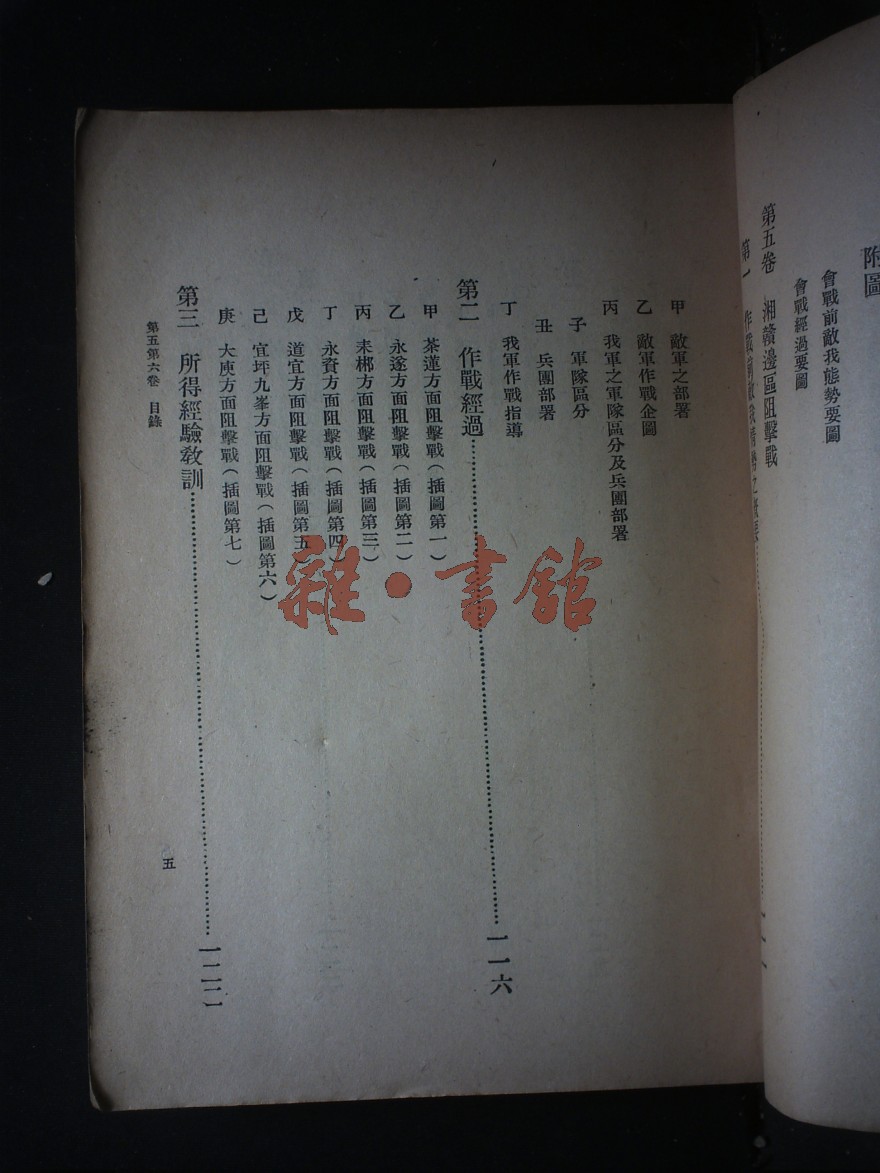 附圖
會戰前敵我態勢要圖
會戰經過要圖
第五卷 湘贛邊區阻擊戰
第一 作戰前敵我
甲 敵軍之部署
乙 敵軍作戰企圖
丙 我軍之軍隊區分及兵團部署
子 軍隊區分
丑 兵團部署
丁 我軍作戰指導
第二 作戰經過……一一六
甲 茶蓮方面阻擊戰(插圖第一)
乙 永遂方面阻擊戰(插圖第二)
丙 耒郴方面阻擊戰(插圖第三)
丁 永資方面阻擊戰(插圖第四)
戊 道宜方面阻擊戰(插圖第五)
己 宜坪九峯方面阻擊戰(插圖第六)
庚 大庾方面阻擊戰(插圖第七)
第三 所得經驗敎訓……一二二
第五第六卷 目錄
五
雜·書館